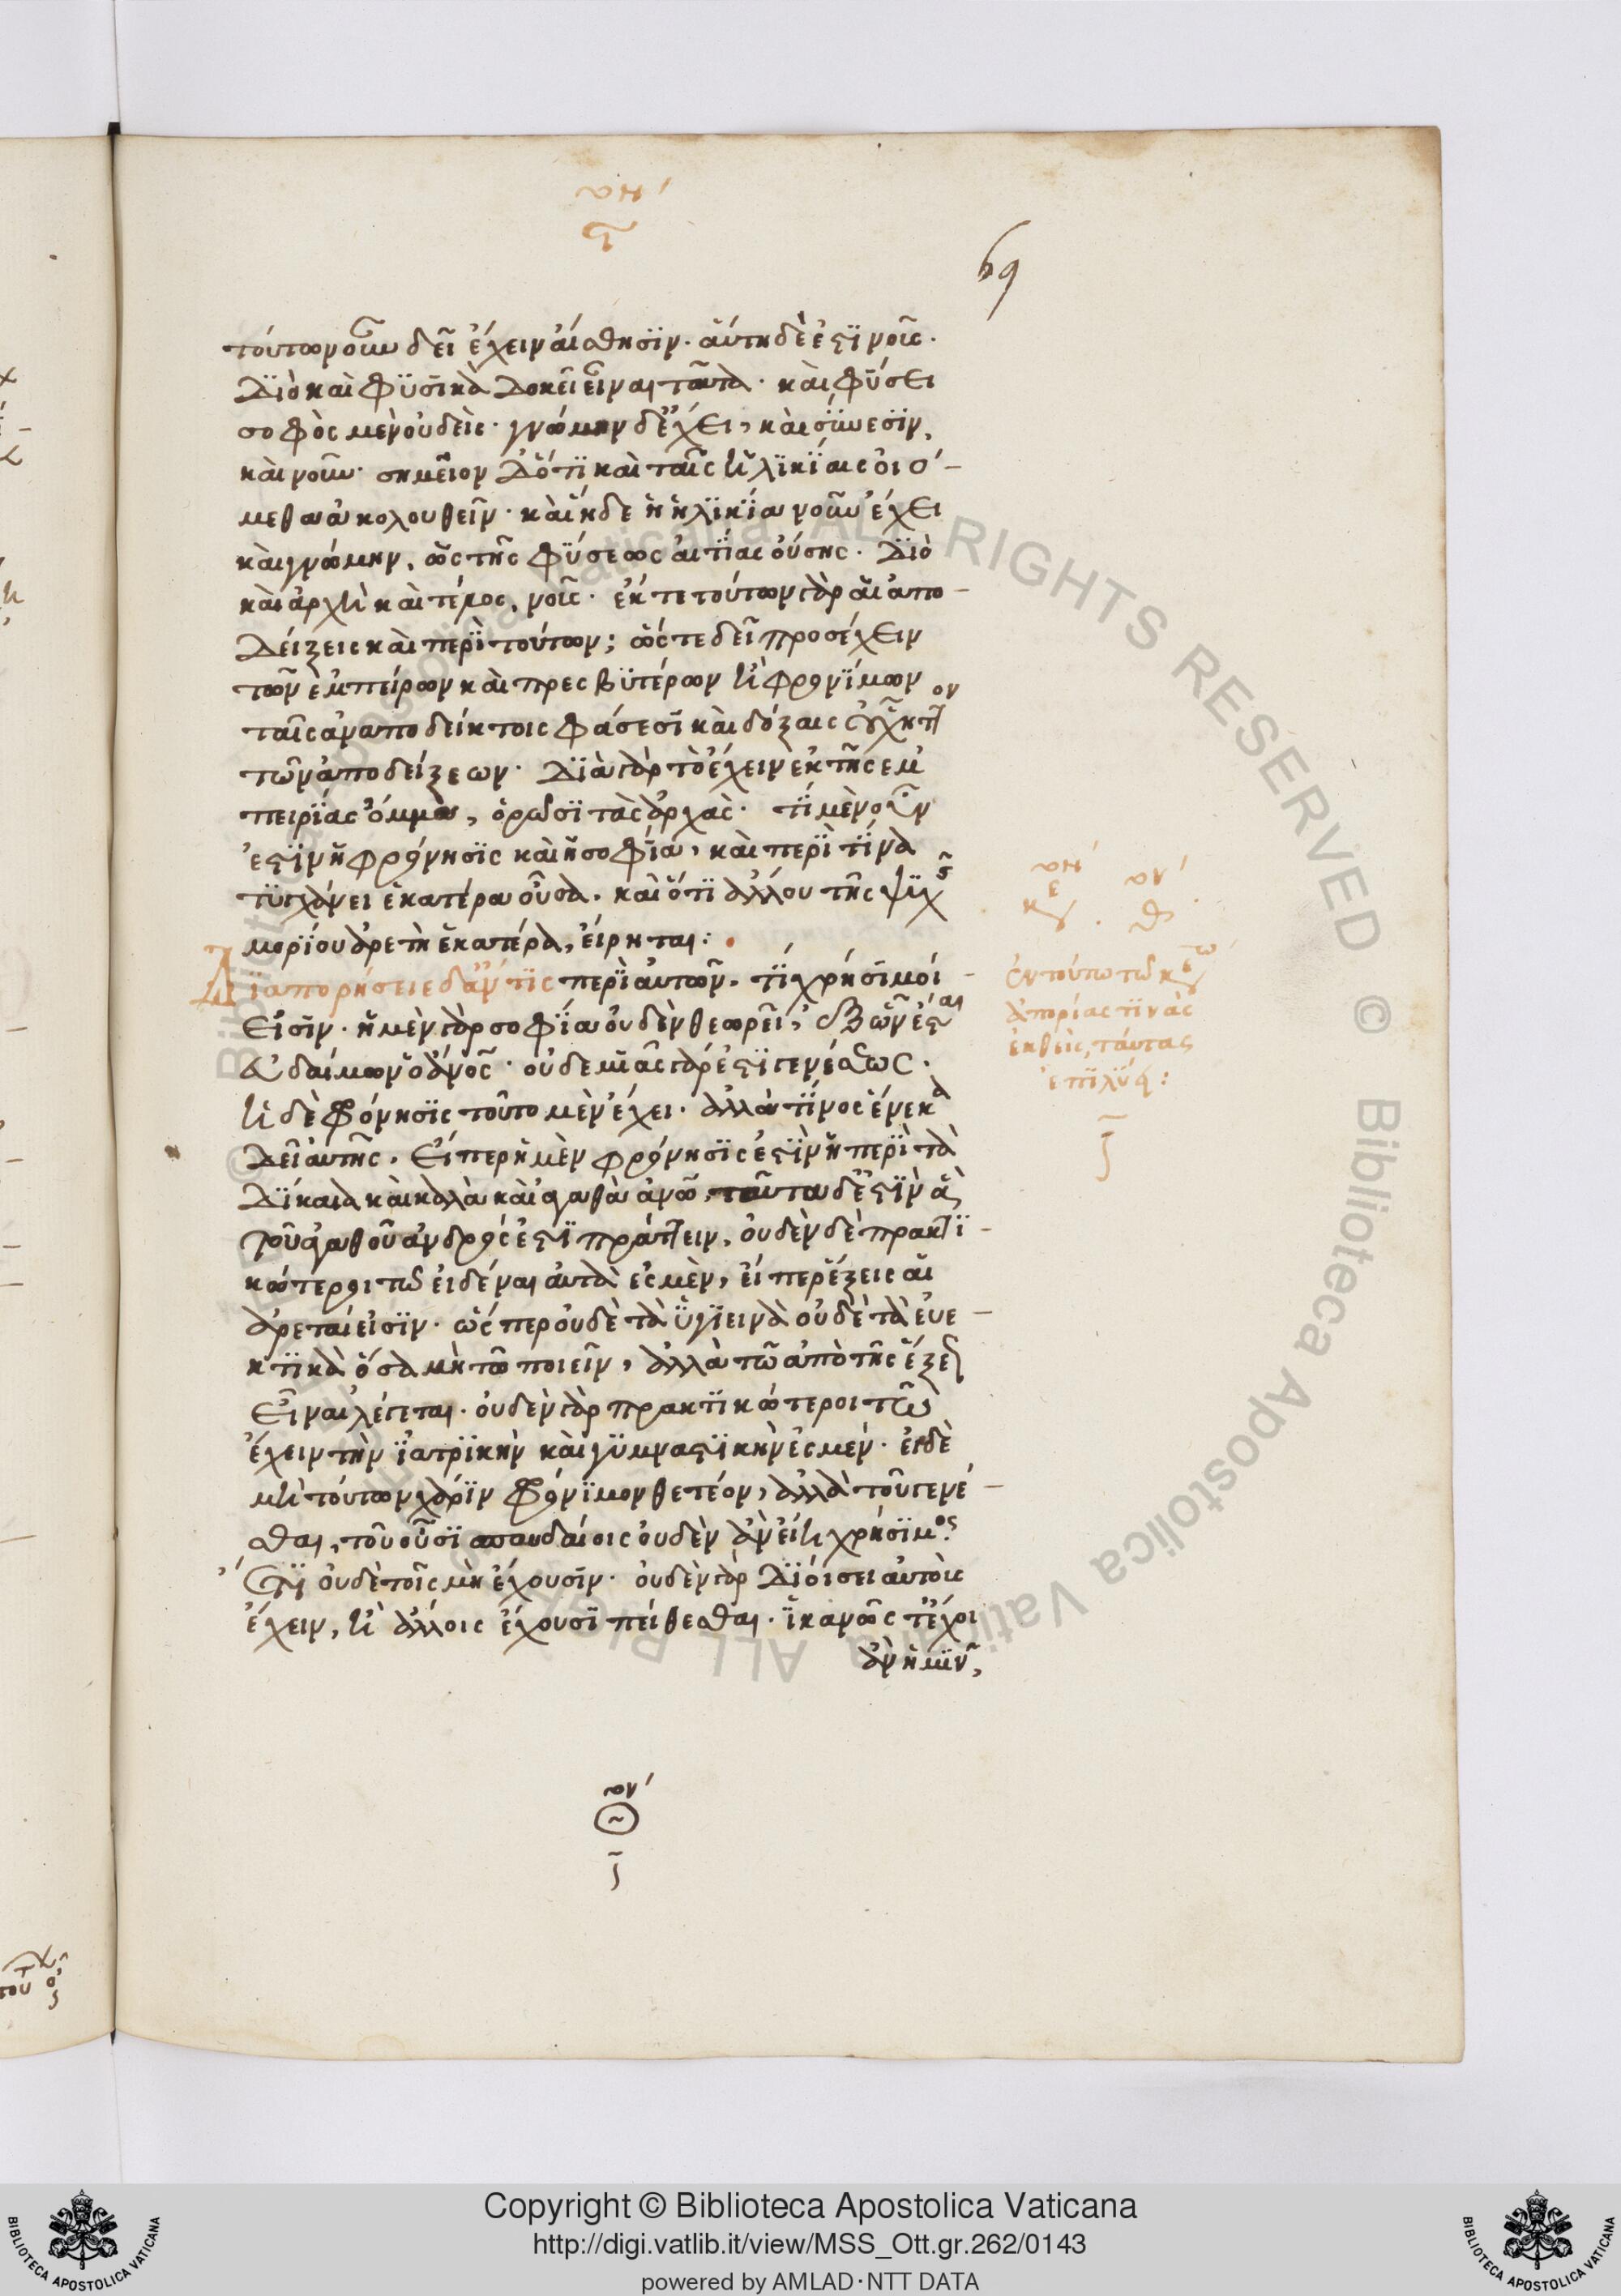 69
τούτων οὖν δεῖ ἔχειν αἴσθησϊν· αὕτη δὲ ἐστϊ νοῦς·
Διὸ καὶ φϋσϊκὰ δοκεῖ εἶναι ταῦτα· καὶ φύσει
σοφὸς μὲν οὐδεὶς· γνώμην δ' ἔχει, καὶ σύνεσϊν,
καὶ νοῦν· σημεῖον δ' ὅτϊ καὶ ταῖς ἡλϊκΐαις οἰό-
μεθα ἀκολουθεῖν· καὶ ἥδε ἡ ἡλϊκΐα νοῦν ἔχει
καὶ γνώμην, ὡς τῆς φύσεως αἰτΐας οὔσης· Διὸ
καὶ ἀρχὴ καὶ τέλος, νοῦς· ἐκ τε τούτων γὰρ αἱ ἀπο-
δείξεις καὶ περὶ τούτων; ὥστε δεῖ προσέχειν
τῶν ἐμπείρων καὶ πρεσβϋτέρων ἢ φρονΐμων
ταῖς ἀναποδείκτοις φάσεσϊ καὶ δόξαις οὐχ ἧττον
τῶν ἀποδείξεων· Διὰ γὰρ τὸ ἔχειν ἐκ τῆς ἐμ
πειρΐας ὄμμα, ὁρῶσϊ τὰς ἀρχὰς· τΐ μὲν οὖν
ἐστϊν ἡ φρόνησϊς καὶ ἡ σοφΐα, καὶ περὶ τΐνα
τϋγχάνει ἑκατέρα οὖσα, καὶ ὅτϊ ἄλλου τῆς ψϋχῆς
μορΐου ἀρετὴ ἑκατέρα, εἴρηται:
Δϊαπορήσειε δ' ἄν τϊς περὶ αὐτῶν, τΐ χρήσϊμοί
εἰσϊν· ἡ μὲν γὰρ σοφΐα οὐδὲν θεωρεῖ, ἐξ ὧν ἔσται
εὐδαίμων ὁ ἄνος· οὐδεμϊᾶς γάρ ἐστϊ γενέσεως·
ἡ δὲ φρόνησϊς τοῦτο μὲν ἔχει· ἀλλὰ τΐνος ἕνεκα
δεῖ αὐτῆς, Εἴπερ ἡ μὲν φρόνησϊς ἐστϊν ἡ περὶ τὰ
Δΐκαια καὶ καλὰ καὶ ἀγαθὰ ἀνω, ταῦτα δ' ἐστϊν ἃ
τοῦ ἀγαθοῦ ἀνδρός ἐστϊ πράττειν, οὐδὲν δὲ πρακτϊ-
κώτεροι τῶ εἰδέναι αὐτὰ ἐσμὲν, εἴπερ ἕξεις αἱ
ἀρεταί εἰσϊν· ὥσπερ οὐδὲ τὰ ὑγϊεινὰ οὐδὲ τὰ εὐε-
κτϊκὰ ὅσα μὴ τῶ ποιεῖν, ἀλλὰ τῶ ἀπὸ τῆς ἕξεως
Εἶναι λέγεται· οὐδὲν γὰρ πρακτϊκώτεροι τῶ
ἔχειν τὴν ἰατρϊκὴν καὶ γϋμναστϊκὴν ἐσμέν· εἰ δὲ
μὴ τούτων χάρϊν φρόνϊμον θετέον, ἀλλὰ τοῦ γενέ-
σθαι, τοῦ οὖσϊ σπουδαίοις οὐδὲν ἂν εἴη χρήσϊμος
ἔτϊ οὐδὲ τοῖς μὴ ἔχουσϊν· οὐδὲν γὰρ Δϊοίσει αὐτοὺς
ἔχειν, ἢ ἄλλοις ἔχουσϊ πείθεσθαι· ἱκανῶς τ' ἔχοι
ἂν ἡμϊν,
ἐν τούτω τῶ
ἀπορίας τϊνὰς
ἐκθεὶς, ταύτας
ἐπϊλύει:
Copyright © Biblioteca Apostolica Vaticana
http://digi.vatlib.it/view/MSS_Ott.gr.262/0143
powered by AMLAD·NTT DATA